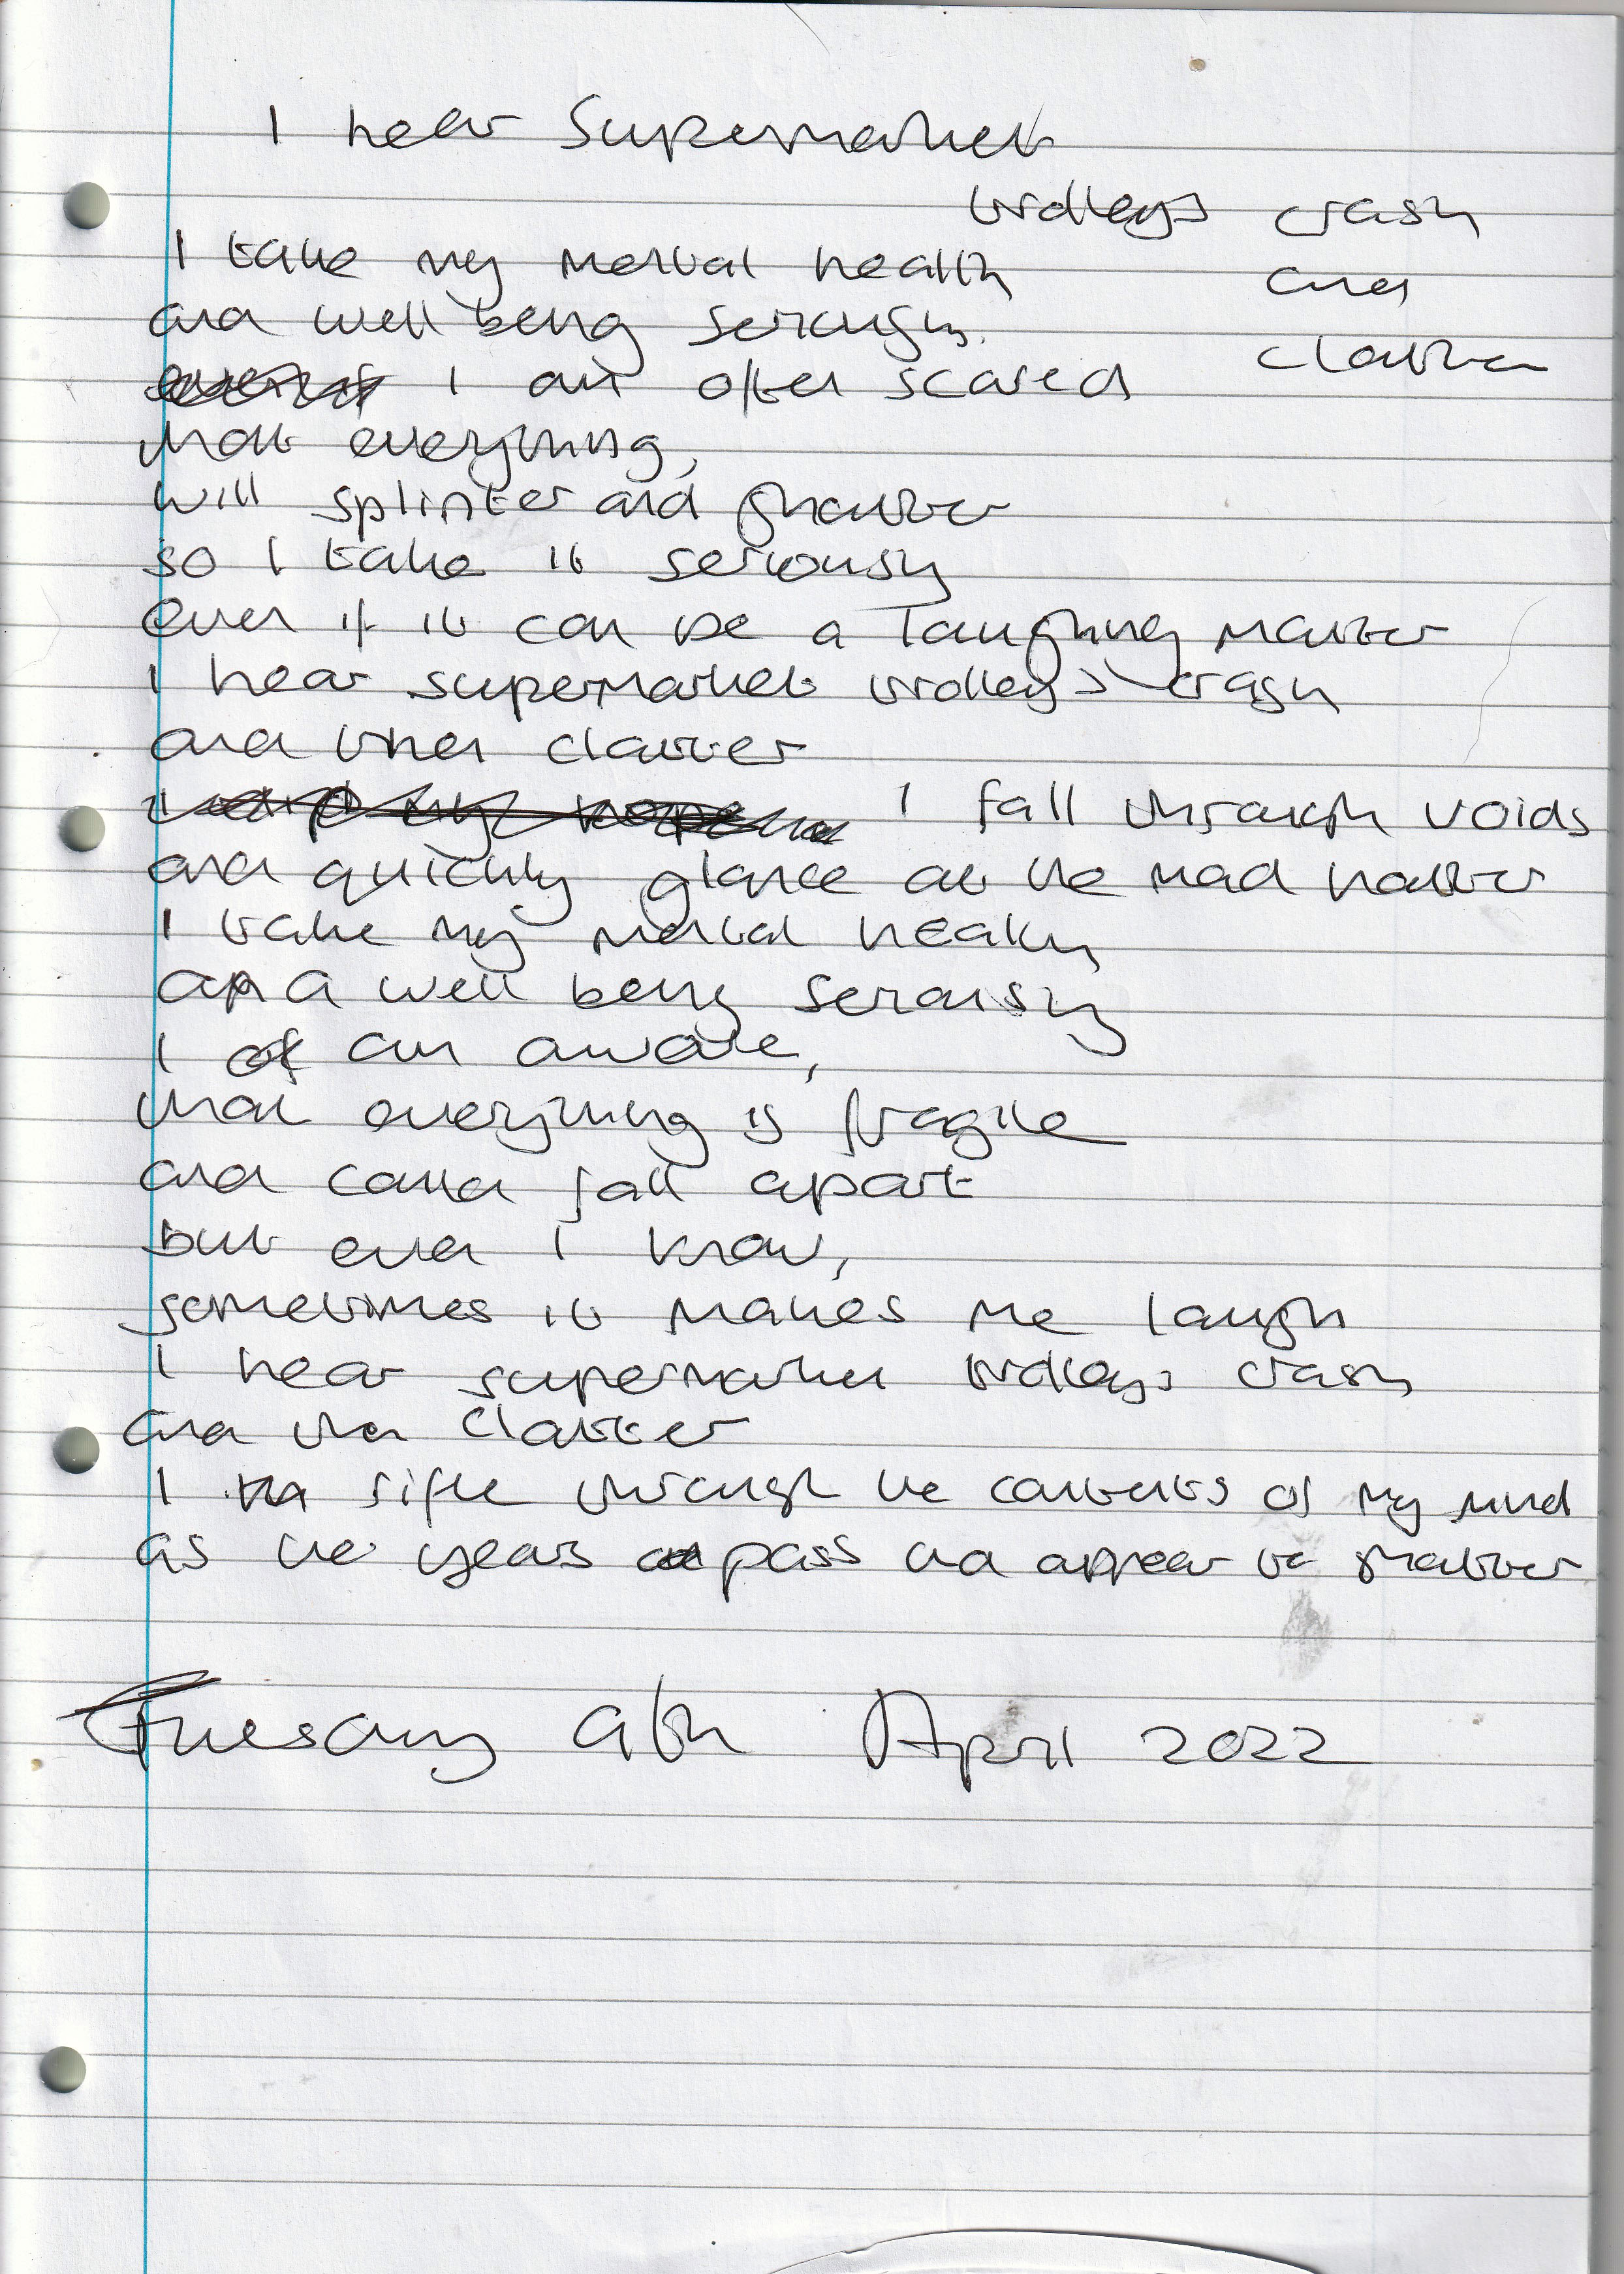 I hear Supermarket
trolleys crash
and
clatter
I take my mental health
and well being seriously.
I am often scared
that everything,
will splinter and shatter
so I take it seriously
even if it can be a laughing matter
I hear supermarket trolleys crash
and then clatter
I fall through voids
and quickly glance at the mad hatter
I take my mental health
and well being seriously
I am aware,
that everything is fragile
and could fall apart
but even I know,
sometimes it makes me laugh
I hear supermarket trolleys crash
and then clatter
I rifle through the contents of my mind
as the years pass and appear to shatter
Tuesday 9th April 2022